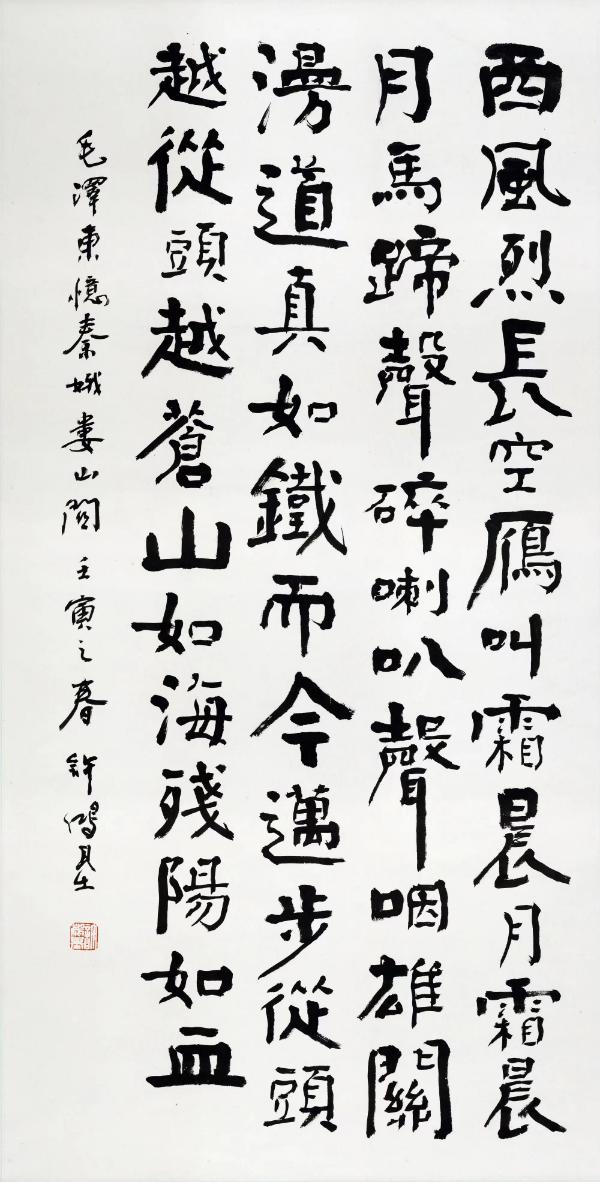 西風烈長空鴈叫霜晨月霜晨
月馬蹄聲碎喇叭聲咽雄關
漫道真如鐵而今邁步從頭
越從頭越蒼山如海殘陽如血
毛澤東憶秦娥婁山關 壬寅之春 許鴻基